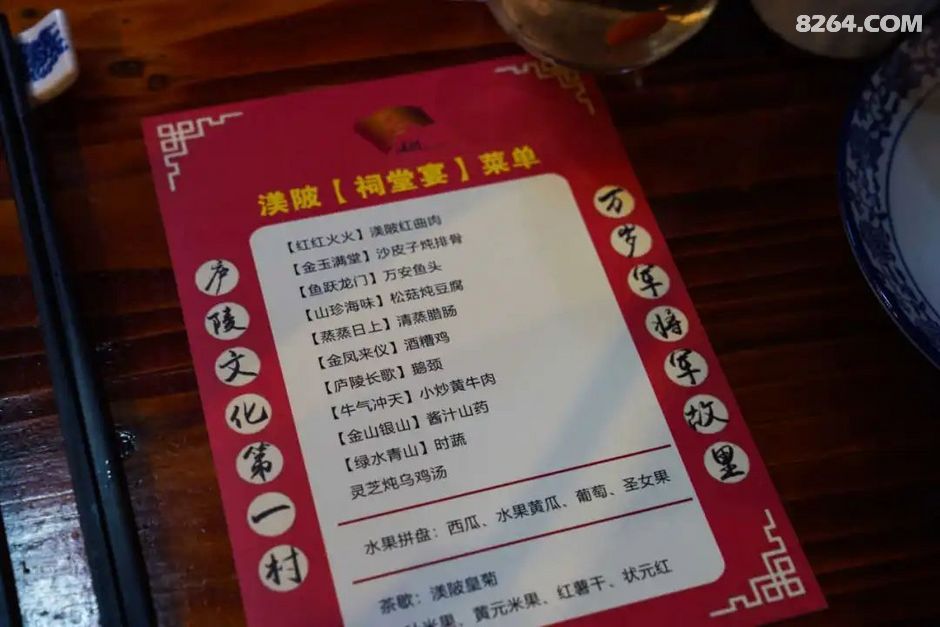 8264.COM
渼陂【祠堂宴】菜单
【红红火火】渼陂红曲肉
【金玉满堂】沙皮子炖排骨
【鱼跃龙门】万安鱼头
【山珍海味】松菇炖豆腐
【蒸蒸日上】清蒸腊肠
【金凤来仪】酒糟鸡
【庐陵长歌】鹅颈
【牛气冲天】小炒黄牛肉
【金山银山】酱汁山药
【绿水青山】时蔬
灵芝炖乌鸡汤
水果拼盘：西瓜、水果黄瓜、葡萄、圣女果
茶歇：渼陂皇菊
米果、黄元米果、红薯干、状元红
庐陵文化第一村
万岁军将军故里